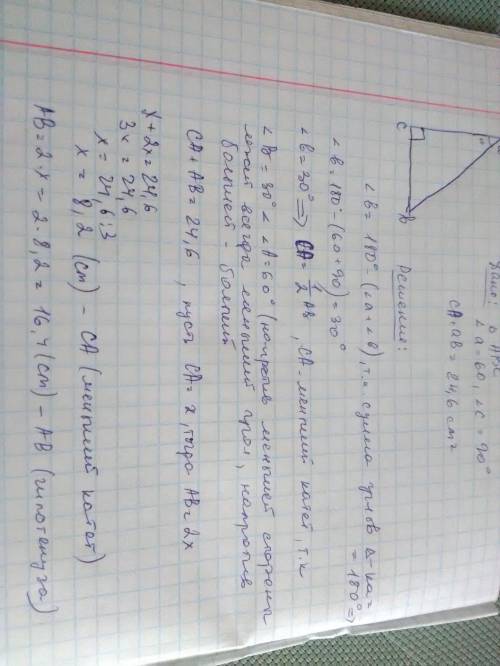 Дано:
∠a=60, ∠C = 90°
CA+AB = 24,6 см
C
B
Решение:
∠B = 180°- (∠a+∠C), т.к сумма углов Δ-ка=
= 180° ⇒
∠B = 180°- (60+90) = 30°
∠B = 30° ⇒ CA = 1/2 AB, CA - меньший катет, т.к
∠B = 30° < ∠A = 60° (напротив меньшей стороны
лежит всегда меньший угол, напротив
большей - больший
CA + AB = 24,6, пусть CA = x, тогда AB = 2x
x + 2x = 24,6
3x = 24,6
x = 24,6:3
x = 8,2 (см) - CA (меньший катет)
AB = 2x = 2·8,2 = 16,4 (см) - AB (гипотенуза)